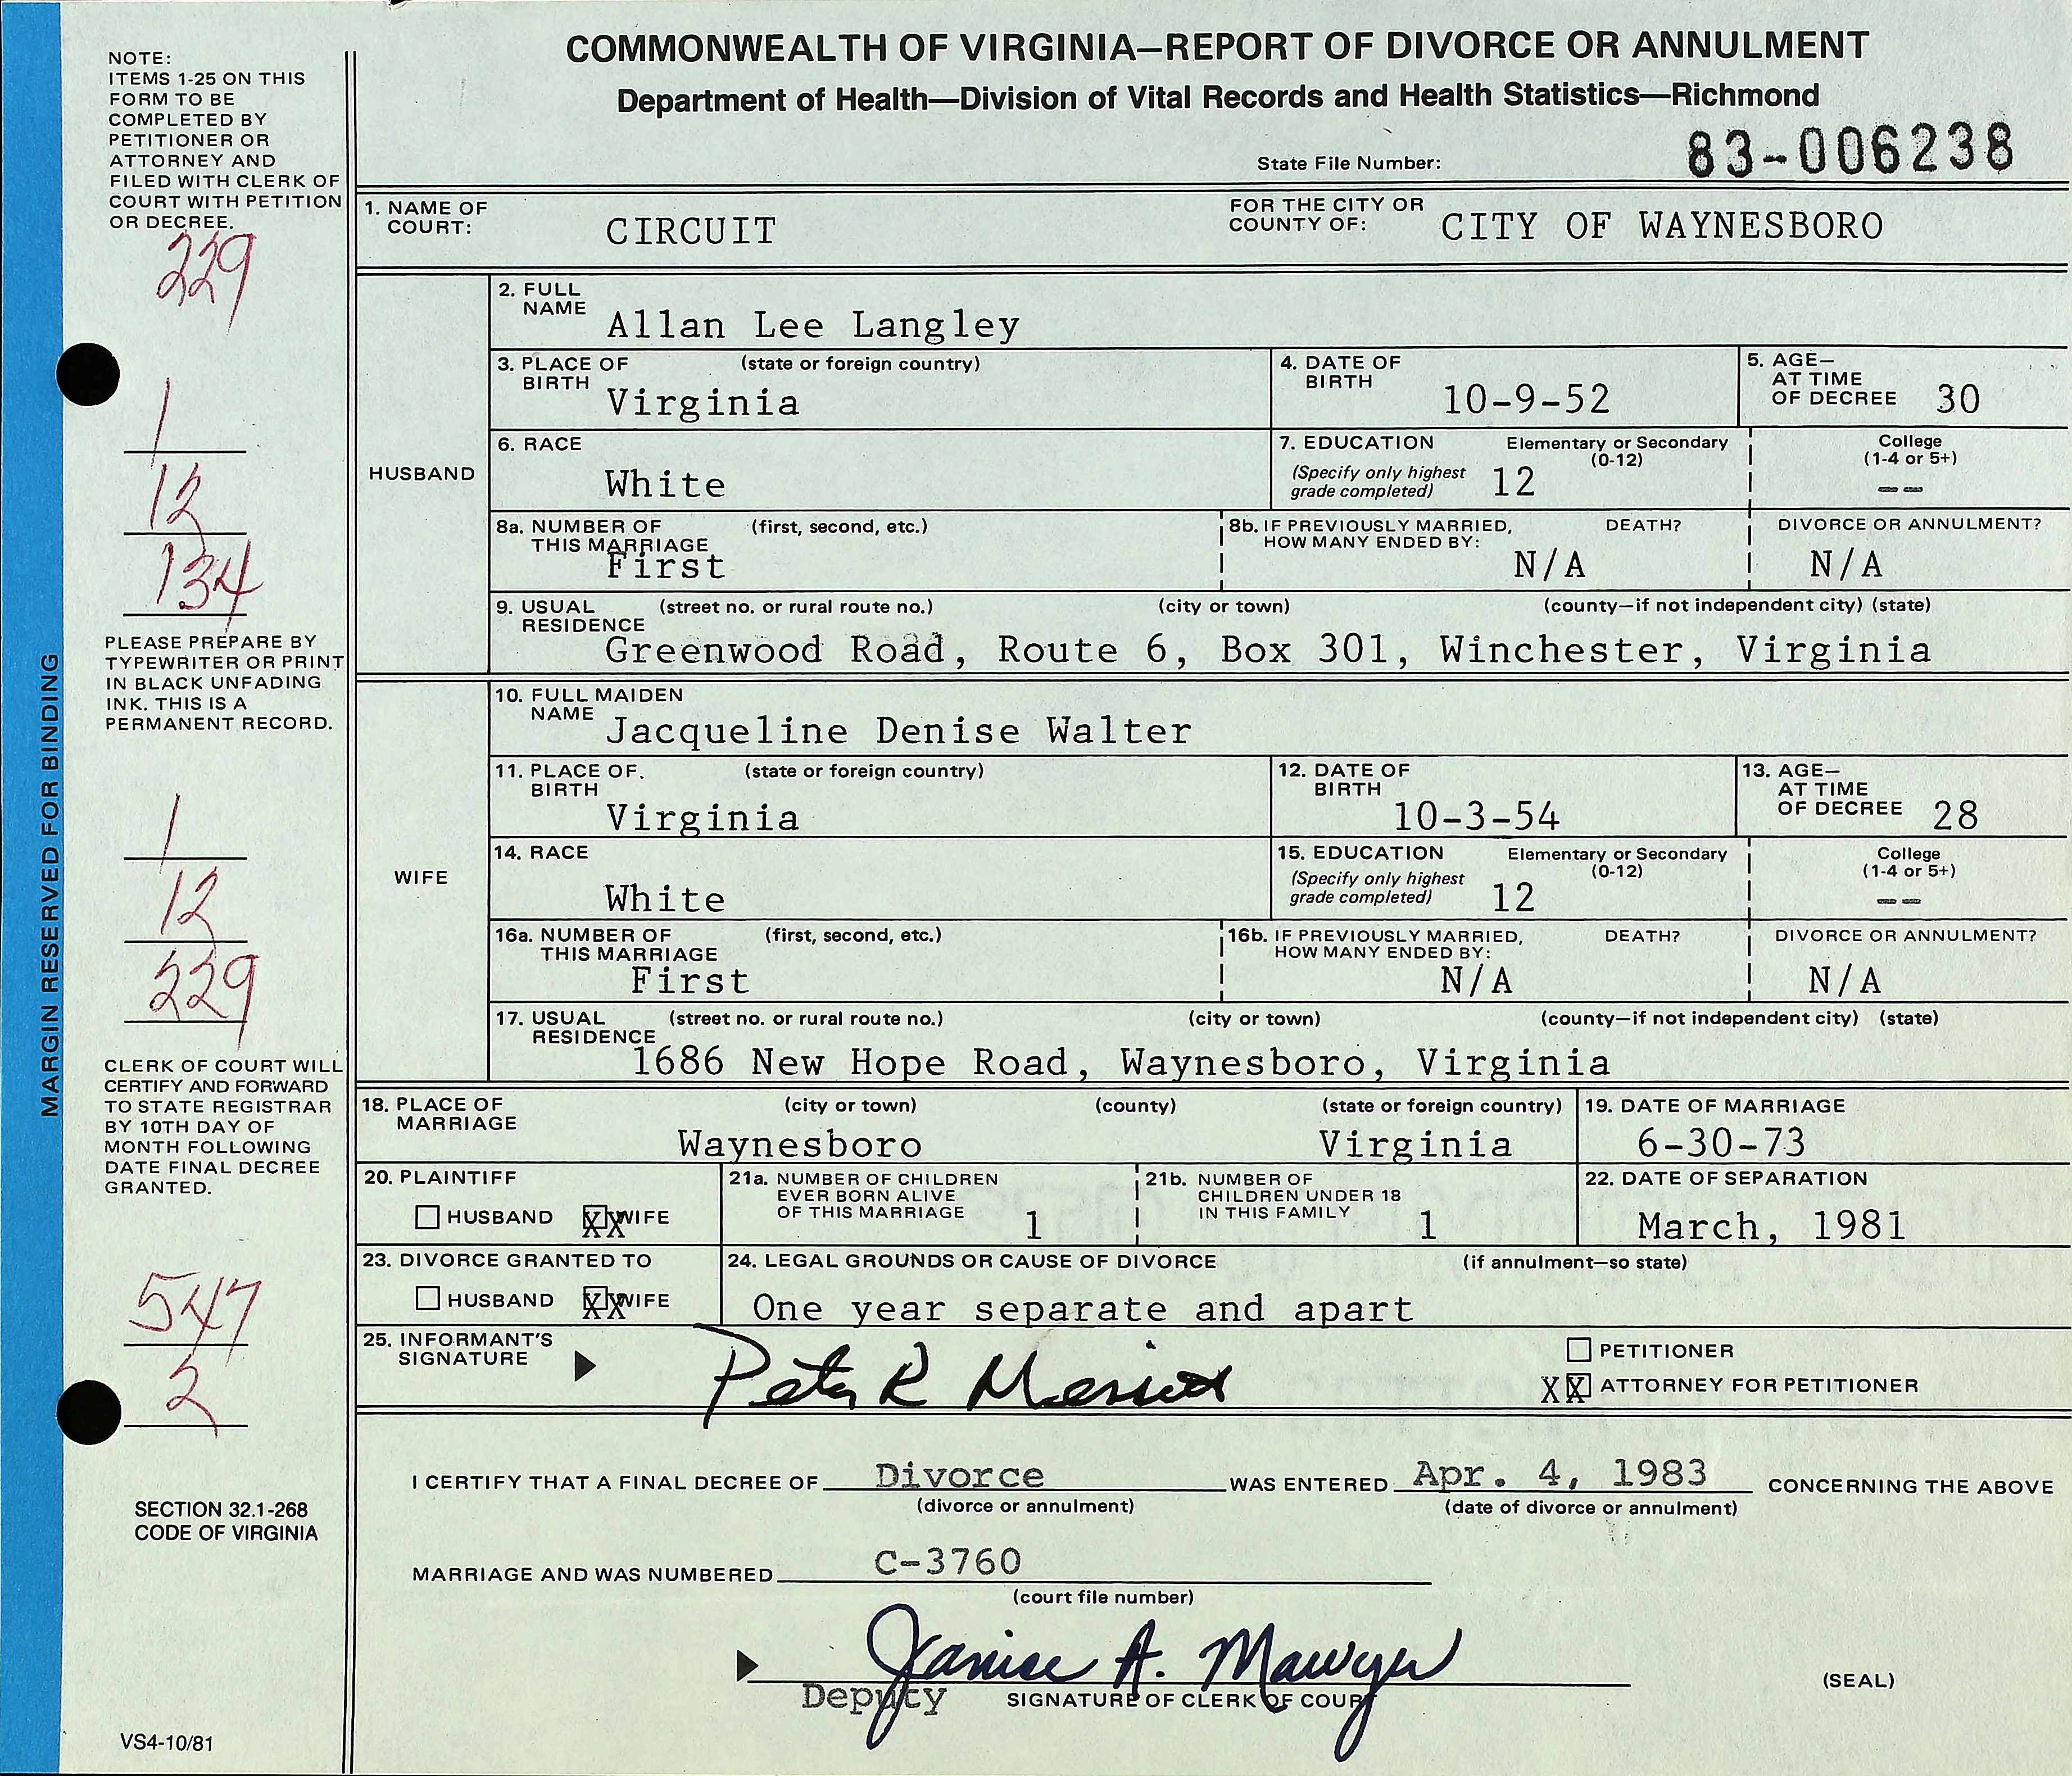 COMMONWEALTH OF VIRGINIA—REPORT OF DIVORCE OR ANNULMENT
Department of Health—Division of Vital Records and Health Statistics—Richmond
State File Number: 83-006238
NOTE:
ITEMS 1-25 ON THIS
FORM TO BE
COMPLETED BY
PETITIONER OR
ATTORNEY AND
FILED WITH CLERK OF
COURT WITH PETITION
OR DECREE.
229
1
12
134
PLEASE PREPARE BY
TYPEWRITER OR PRINT
IN BLACK UNFADING
INK. THIS IS A
PERMANENT RECORD.
1
12
229
CLERK OF COURT WILL
CERTIFY AND FORWARD
TO STATE REGISTRAR
BY 10TH DAY OF
MONTH FOLLOWING
DATE FINAL DECREE
GRANTED.
547
2
SECTION 32.1-268
CODE OF VIRGINIA
VS4-10/81
MARGIN RESERVED FOR BINDING
1. NAME OF COURT: CIRCUIT FOR THE CITY OR COUNTY OF: CITY OF WAYNESBORO
HUSBAND
2. FULL NAME Allan Lee Langley
3. PLACE OF BIRTH (state or foreign country) Virginia
4. DATE OF BIRTH 10-9-52
5. AGE— AT TIME OF DECREE 30
6. RACE White
7. EDUCATION (Specify only highest grade completed) Elementary or Secondary (0-12) 12 College (1-4 or 5+) --
8a. NUMBER OF THIS MARRIAGE (first, second, etc.) First
8b. IF PREVIOUSLY MARRIED, HOW MANY ENDED BY: DEATH? N/A DIVORCE OR ANNULMENT? N/A
9. USUAL RESIDENCE (street no. or rural route no.) (city or town) (county—if not independent city) (state)
Greenwood Road, Route 6, Box 301, Winchester, Virginia
WIFE
10. FULL MAIDEN NAME Jacqueline Denise Walter
11. PLACE OF. BIRTH (state or foreign country) Virginia
12. DATE OF BIRTH 10-3-54
13. AGE— AT TIME OF DECREE 28
14. RACE White
15. EDUCATION (Specify only highest grade completed) Elementary or Secondary (0-12) 12 College (1-4 or 5+) --
16a. NUMBER OF THIS MARRIAGE (first, second, etc.) First
16b. IF PREVIOUSLY MARRIED, HOW MANY ENDED BY: DEATH? N/A DIVORCE OR ANNULMENT? N/A
17. USUAL RESIDENCE (street no. or rural route no.) (city or town) (county—if not independent city) (state)
1686 New Hope Road, Waynesboro, Virginia
18. PLACE OF MARRIAGE (city or town) (county) (state or foreign country)
Waynesboro Virginia
19. DATE OF MARRIAGE 6-30-73
20. PLAINTIFF HUSBAND XX WIFE
21a. NUMBER OF CHILDREN EVER BORN ALIVE OF THIS MARRIAGE 1
21b. NUMBER OF CHILDREN UNDER 18 IN THIS FAMILY 1
22. DATE OF SEPARATION March, 1981
23. DIVORCE GRANTED TO HUSBAND XX WIFE
24. LEGAL GROUNDS OR CAUSE OF DIVORCE (if annulment—so state)
One year separate and apart
25. INFORMANT'S SIGNATURE Peter R
PETITIONER
XX ATTORNEY FOR PETITIONER
I CERTIFY THAT A FINAL DECREE OF Divorce WAS ENTERED Apr. 4, 1983 CONCERNING THE ABOVE
(divorce or annulment) (date of divorce or annulment)
MARRIAGE AND WAS NUMBERED C-3760
(court file number)
Janice A. Mawyer
Deputy SIGNATURE OF CLERK OF COURT (SEAL)